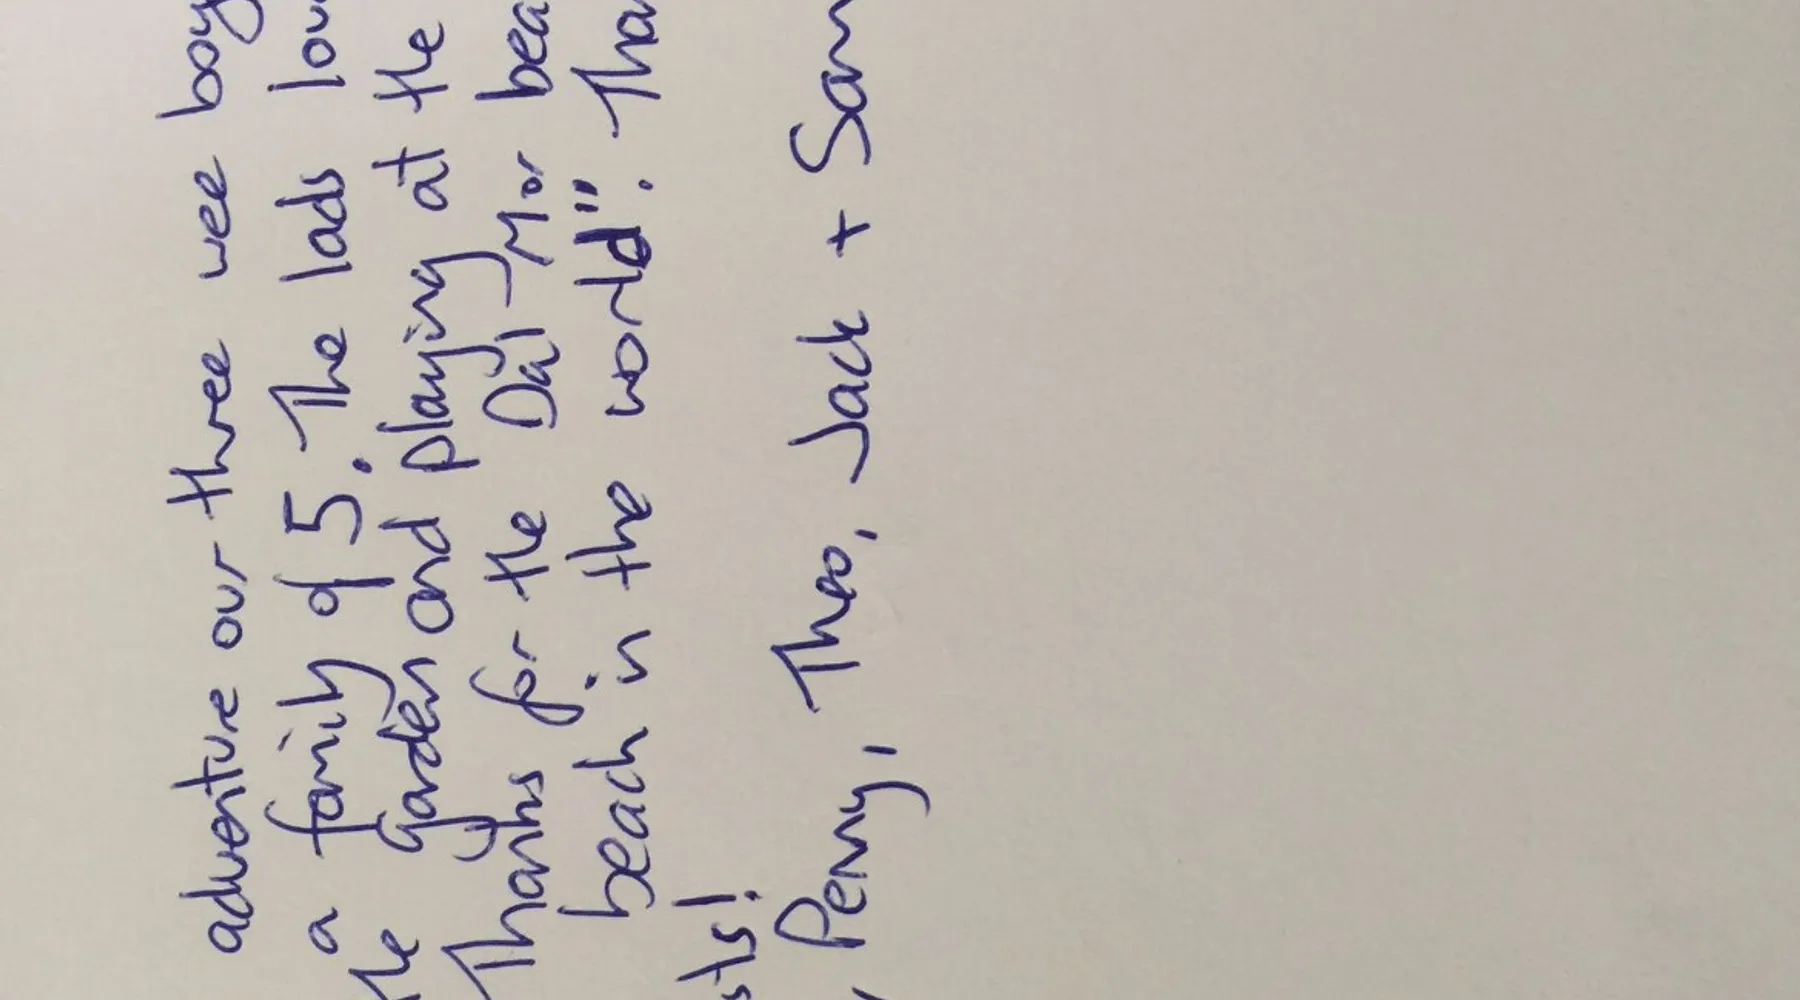 adventure our three wee boy
a family of 5. The lads lov
the garden and playing at the
Thanks for the Dail-Mor bea
beach in the world". Tha
sts!
Penny, Theo, Jack + Sam